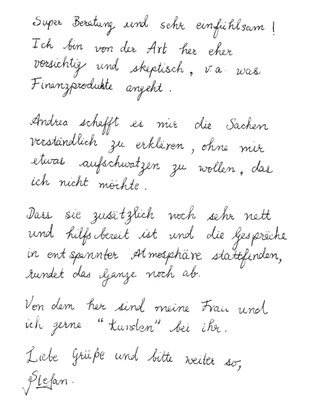 Super Beratung und sehr einfühlsam!
Ich bin von der Art her eher
vorsichtig und skeptisch, v.a. was
Finanzprodukte angeht.
Andrea schafft es mir die Sachen
verständlich zu erklären, ohne mir
etwas aufschwatzen zu wollen, das
ich nicht möchte.
Dass sie zusätzlich noch sehr nett
und hilfsbereit ist und die Gespräche
in entspannter Atmosphäre stattfinden,
rundet das Ganze noch ab.
Von dem her sind meine Frau und
ich gerne "Kunden" bei ihr.
Liebe Grüße und bitte weiter so,
Stefan.